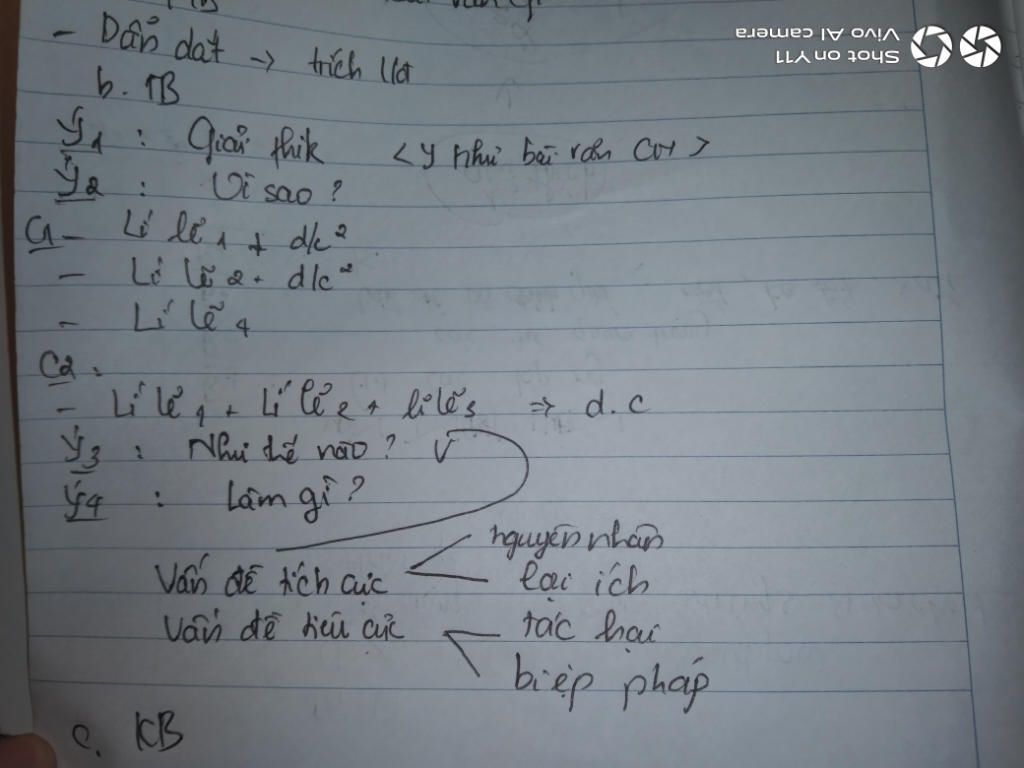 - Dẩn dắt → trích
Shot on Y11
Vivo AI camera
b. TB
Ý1 : Giải thik < y như bài văn CM >
Ý2 : Vì sao ?
C1 - Lí lẽ 1 + d/c²
- Lí lẽ 2 + d/c²
- Lí lẽ 4
C2 :
- Lí lẽ 1 + Lí lẽ 2 + lí lẽ 3 => d.c
Ý3 : Như thế nào ? V
Ý4 : Làm gì ?
nguyên nhân
Vấn đề tích cực lợi ích
Vấn đề tiêu cực tác hại
biệp pháp
c. KB